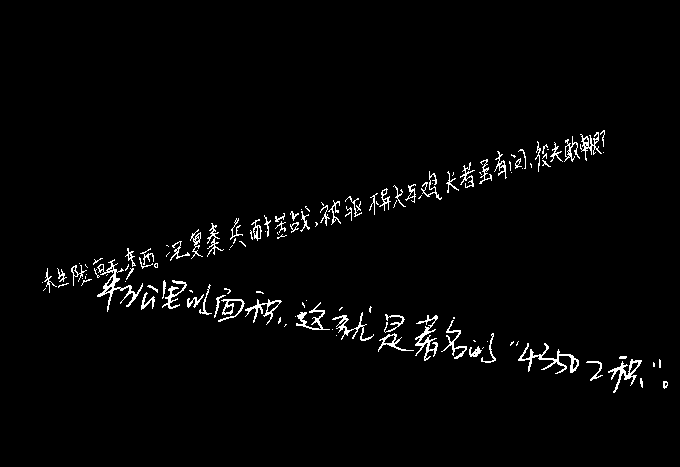 禾生陇亩无东西。况复秦兵耐苦战,被驱不异犬与鸡长者虽有问,役夫敢申恨?
平方公里的面积,这就是著名的“4350工积”。